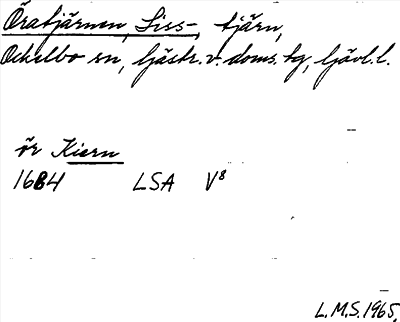 Öratjärnen, Liss-, tjärn,
Ockelbo sn, Gästr.v.doms.tg, Gävl.l.
ör Kiern
1684 LSA V⁸
L.M.S.1965.